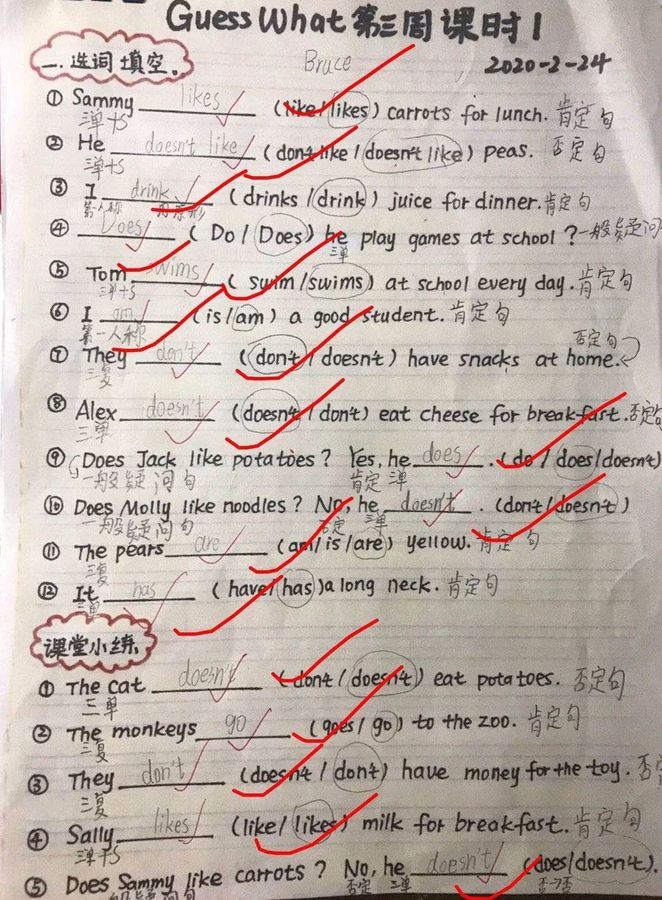 Guess What 第三周课时1
一.选词填空。 Bruce 2020-2-24
① Sammy likes (like/likes) carrots for lunch. 肯定句
三单+s
② He doesn't like (don't like / doesn't like) peas. 否定句
三单+s
③ I drink (drinks / drink) juice for dinner. 肯定句
第一人称 动原形
④ Does (Do / Does) he play games at school? 一般疑问
三单
⑤ Tom swims (swim/swims) at school every day. 肯定句
三单+s
⑥ I am (is/am) a good student. 肯定句
第一人称 否定句
⑦ They don't (don't / doesn't) have snacks at home.
三复
⑧ Alex doesn't (doesn't / don't) eat cheese for breakfast. 否定句
三单
⑨ Does Jack like potatoes? Yes, he does. (do / does/doesn't)
一般疑问句 肯定 三单
⑩ Does Molly like noodles? No, he doesn't. (don't / doesn't)
一般疑问句 否定 三单
⑪ The pears are (am/is/are) yellow. 肯定句
三复
⑫ It has (have/has) a long neck. 肯定句
三单
课堂小练
① The cat doesn't (don't / doesn't) eat potatoes. 否定句
三单
② The monkeys go (goes/go) to the zoo. 肯定句
三复
③ They don't (doesn't / don't) have money for the toy. 否
三复
④ Sally likes (like/likes) milk for breakfast. 肯定句
三单+s
⑤ Does Sammy like carrots? No, he doesn't (does/doesn't).
一般疑问句 否定 三单 否→否